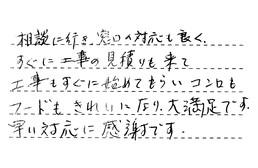 相談に行き窓口の対応も良く、
すぐに工事の見積りも来て
工事もすぐに始めてもらいコンロも
フードもきれいになり、大満足です。
早い対応に感謝です。